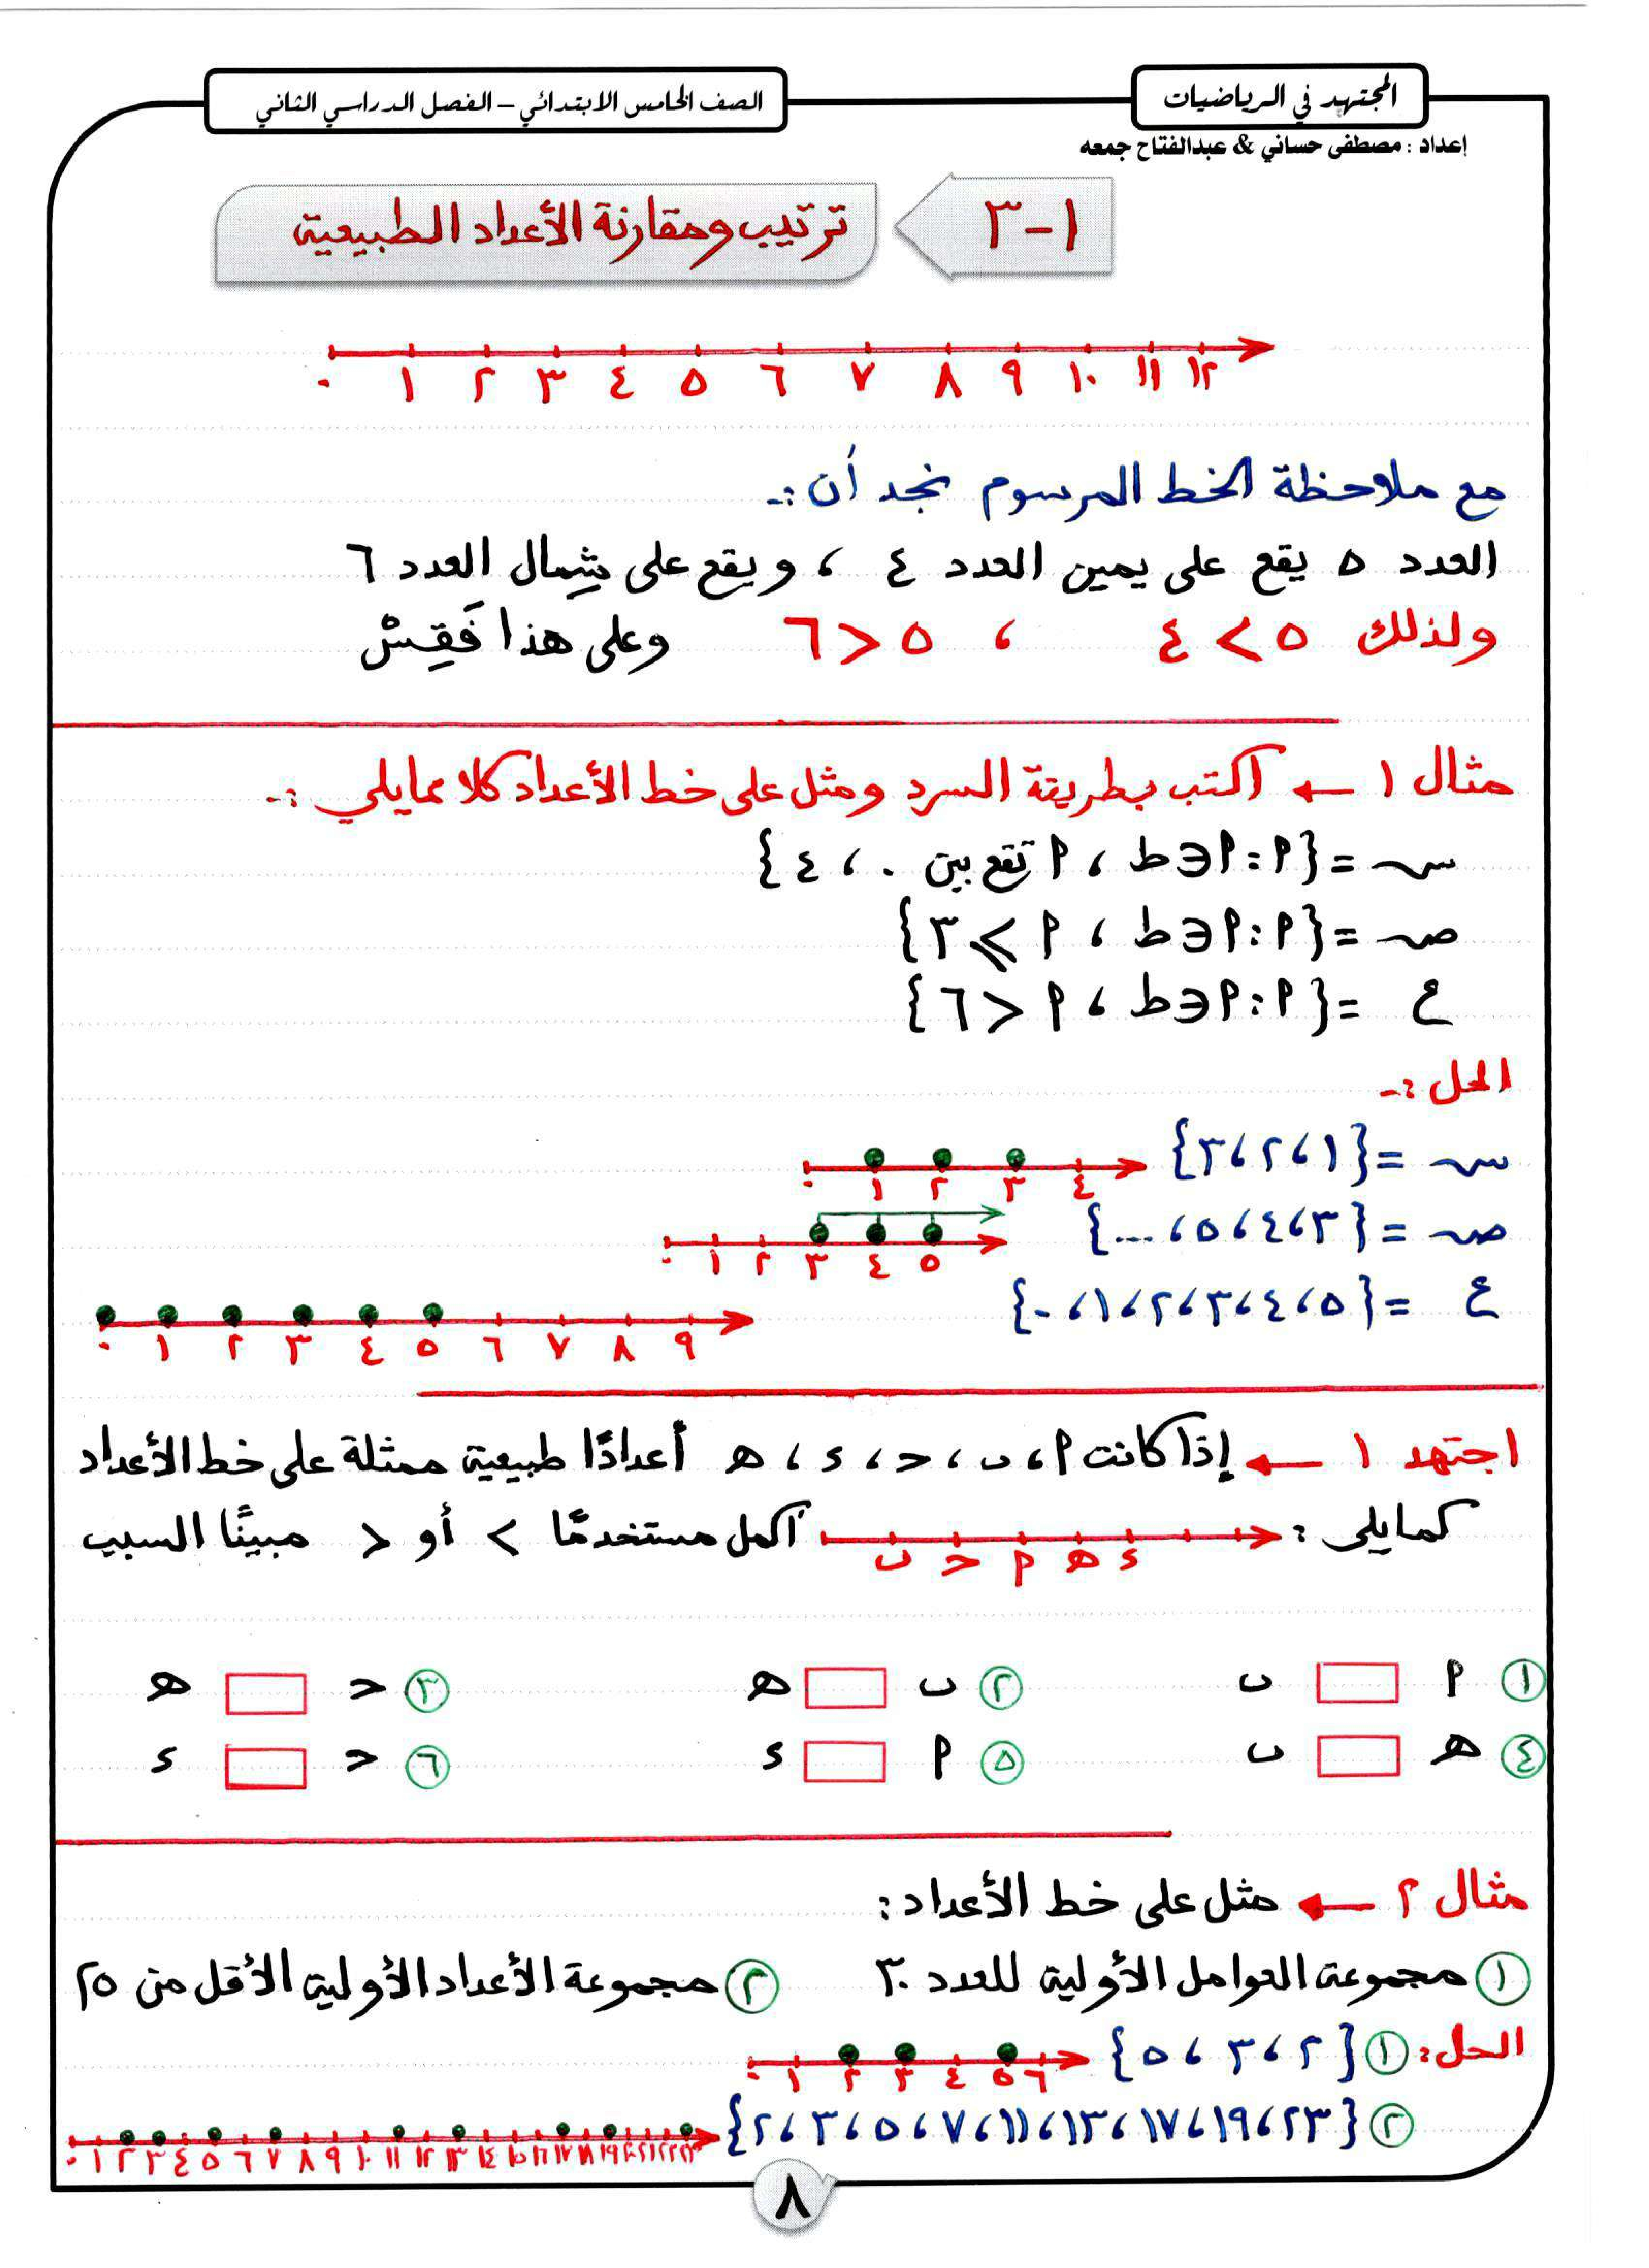 المجتهد في الرياضيات
الصف الخامس الابتدائي – الفصل الدراسي الثاني
إعداد : مصطفى حساني & عبدالفتاح جمعه
١-٣ ترتيب ومقارنة الأعداد الطبيعية
٠ ١ ٢ ٣ ٤ ٥ ٦ ٧ ٨ ٩ ١٠ ١١ ١٢
مع ملاحظة الخط المرسوم نجد أن :-
العدد ٥ يقع على يمين العدد ٤ ، ويقع على شِمال العدد ٦
ولذلك ٥ > ٤ ، ٥ < ٦ وعلى هذا فَقِسْ
مثال ١ ← اكتب بطريقة السرد ومثل على خط الأعداد كلا مما يلي :-
سـ = {أ : أ ∈ ط ، أ تقع بين ٠ ، ٤}
صـ = {أ : أ ∈ ط ، أ ≥ ٣}
ع = {أ : أ ∈ ط ، أ < ٦}
الحل :-
سـ = {١ ، ٢ ، ٣}
٠ ١ ٢ ٣ ٤
صـ = {٣ ، ٤ ، ٥ ، ...}
٠ ١ ٢ ٣ ٤ ٥
ع = {٥ ، ٤ ، ٣ ، ٢ ، ١ ، ٠}
٠ ١ ٢ ٣ ٤ ٥ ٦ ٧ ٨ ٩
اجتهد ١ ← إذا كانت أ ، ب ، حـ ، ء ، هـ أعدادًا طبيعية ممثلة على خط الأعداد
كما يلي : أكمل مستخدمًا > أو < مبينًا السبب
ب حـ أ هـ ء
١ أ ب ٢ ب هـ ٣ حـ هـ
٤ هـ ب ٥ أ ء ٦ حـ ء
مثال ٢ ← مثل على خط الأعداد :
١ مجموعة العوامل الأولية للعدد ٣٠ ٢ مجموعة الأعداد الأولية الأقل من ٢٥
الحل : ١ {٢ ، ٣ ، ٥}
٠ ١ ٢ ٣ ٤ ٥ ٦
٢ {٢٣ ، ١٩ ، ١٧ ، ١٣ ، ١١ ، ٧ ، ٥ ، ٣ ، ٢}
٠ ١ ٢ ٣ ٤ ٥ ٦ ٧ ٨ ٩ ١٠ ١١ ١٢ ١٣ ١٤ ١٥ ١٦ ١٧ ١٨ ١٩ ٢٠ ٢١ ٢٢ ٢٣
٨